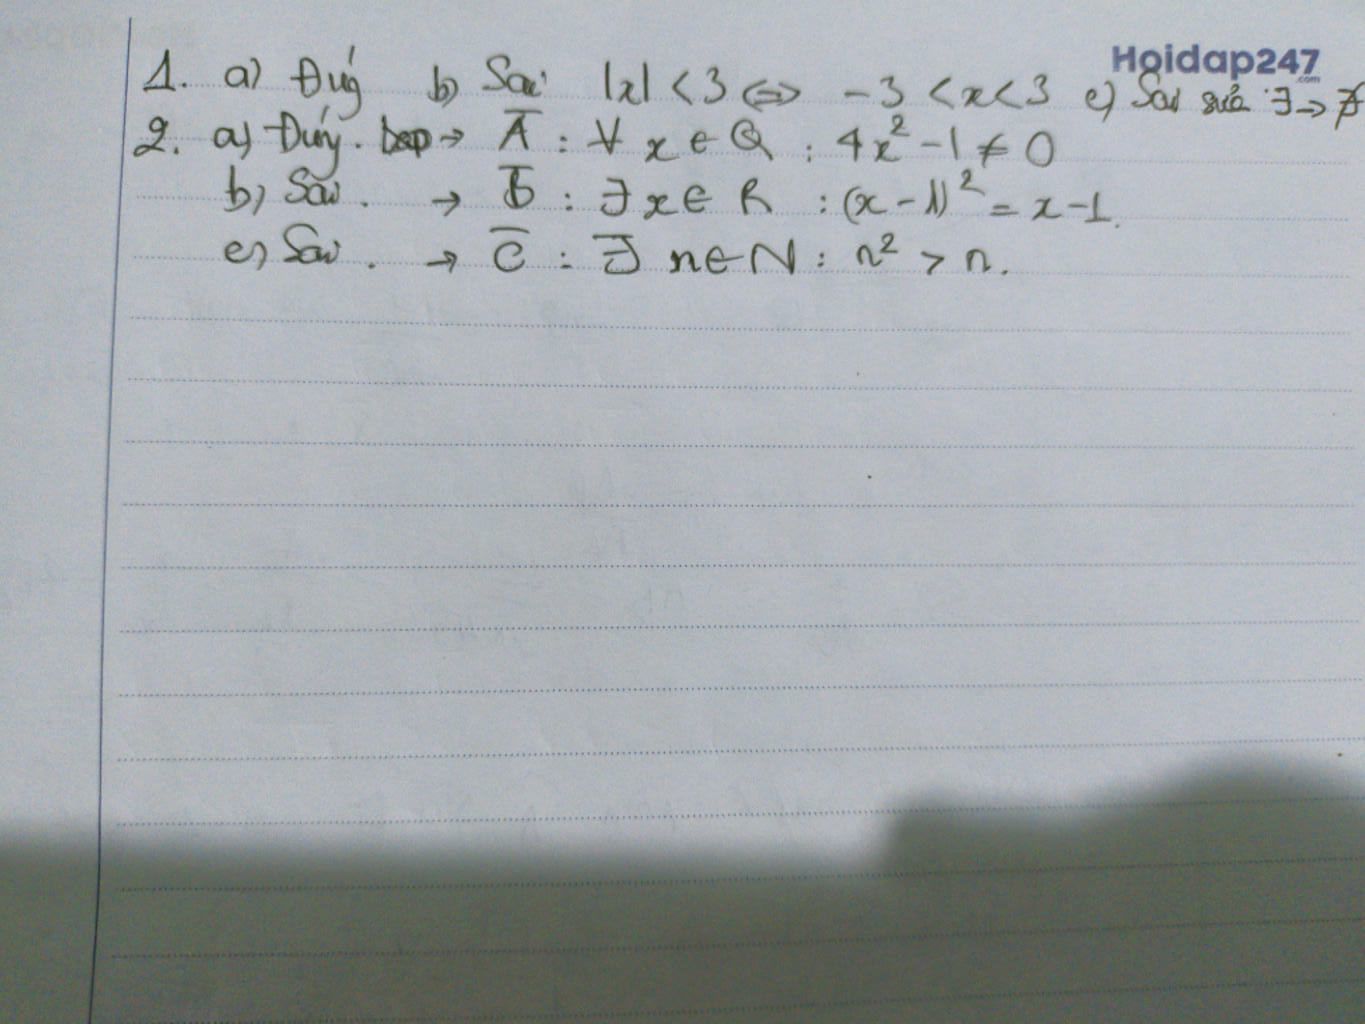 Hoidap247
.com
1. a) Đúng b) Sai |x| < 3 ⇔ -3 < x < 3 c) Sai sửa ∃ → ∄
2. a) Đúng. → A̅ : ∀ x ∈ Q : 4x² - 1 ≠ 0
b) Sai. → B̅ : ∃ x ∈ R : (x - 1)² = x - 1.
c) Sai. → C̅ : ∃ n ∈ N : n² > n.